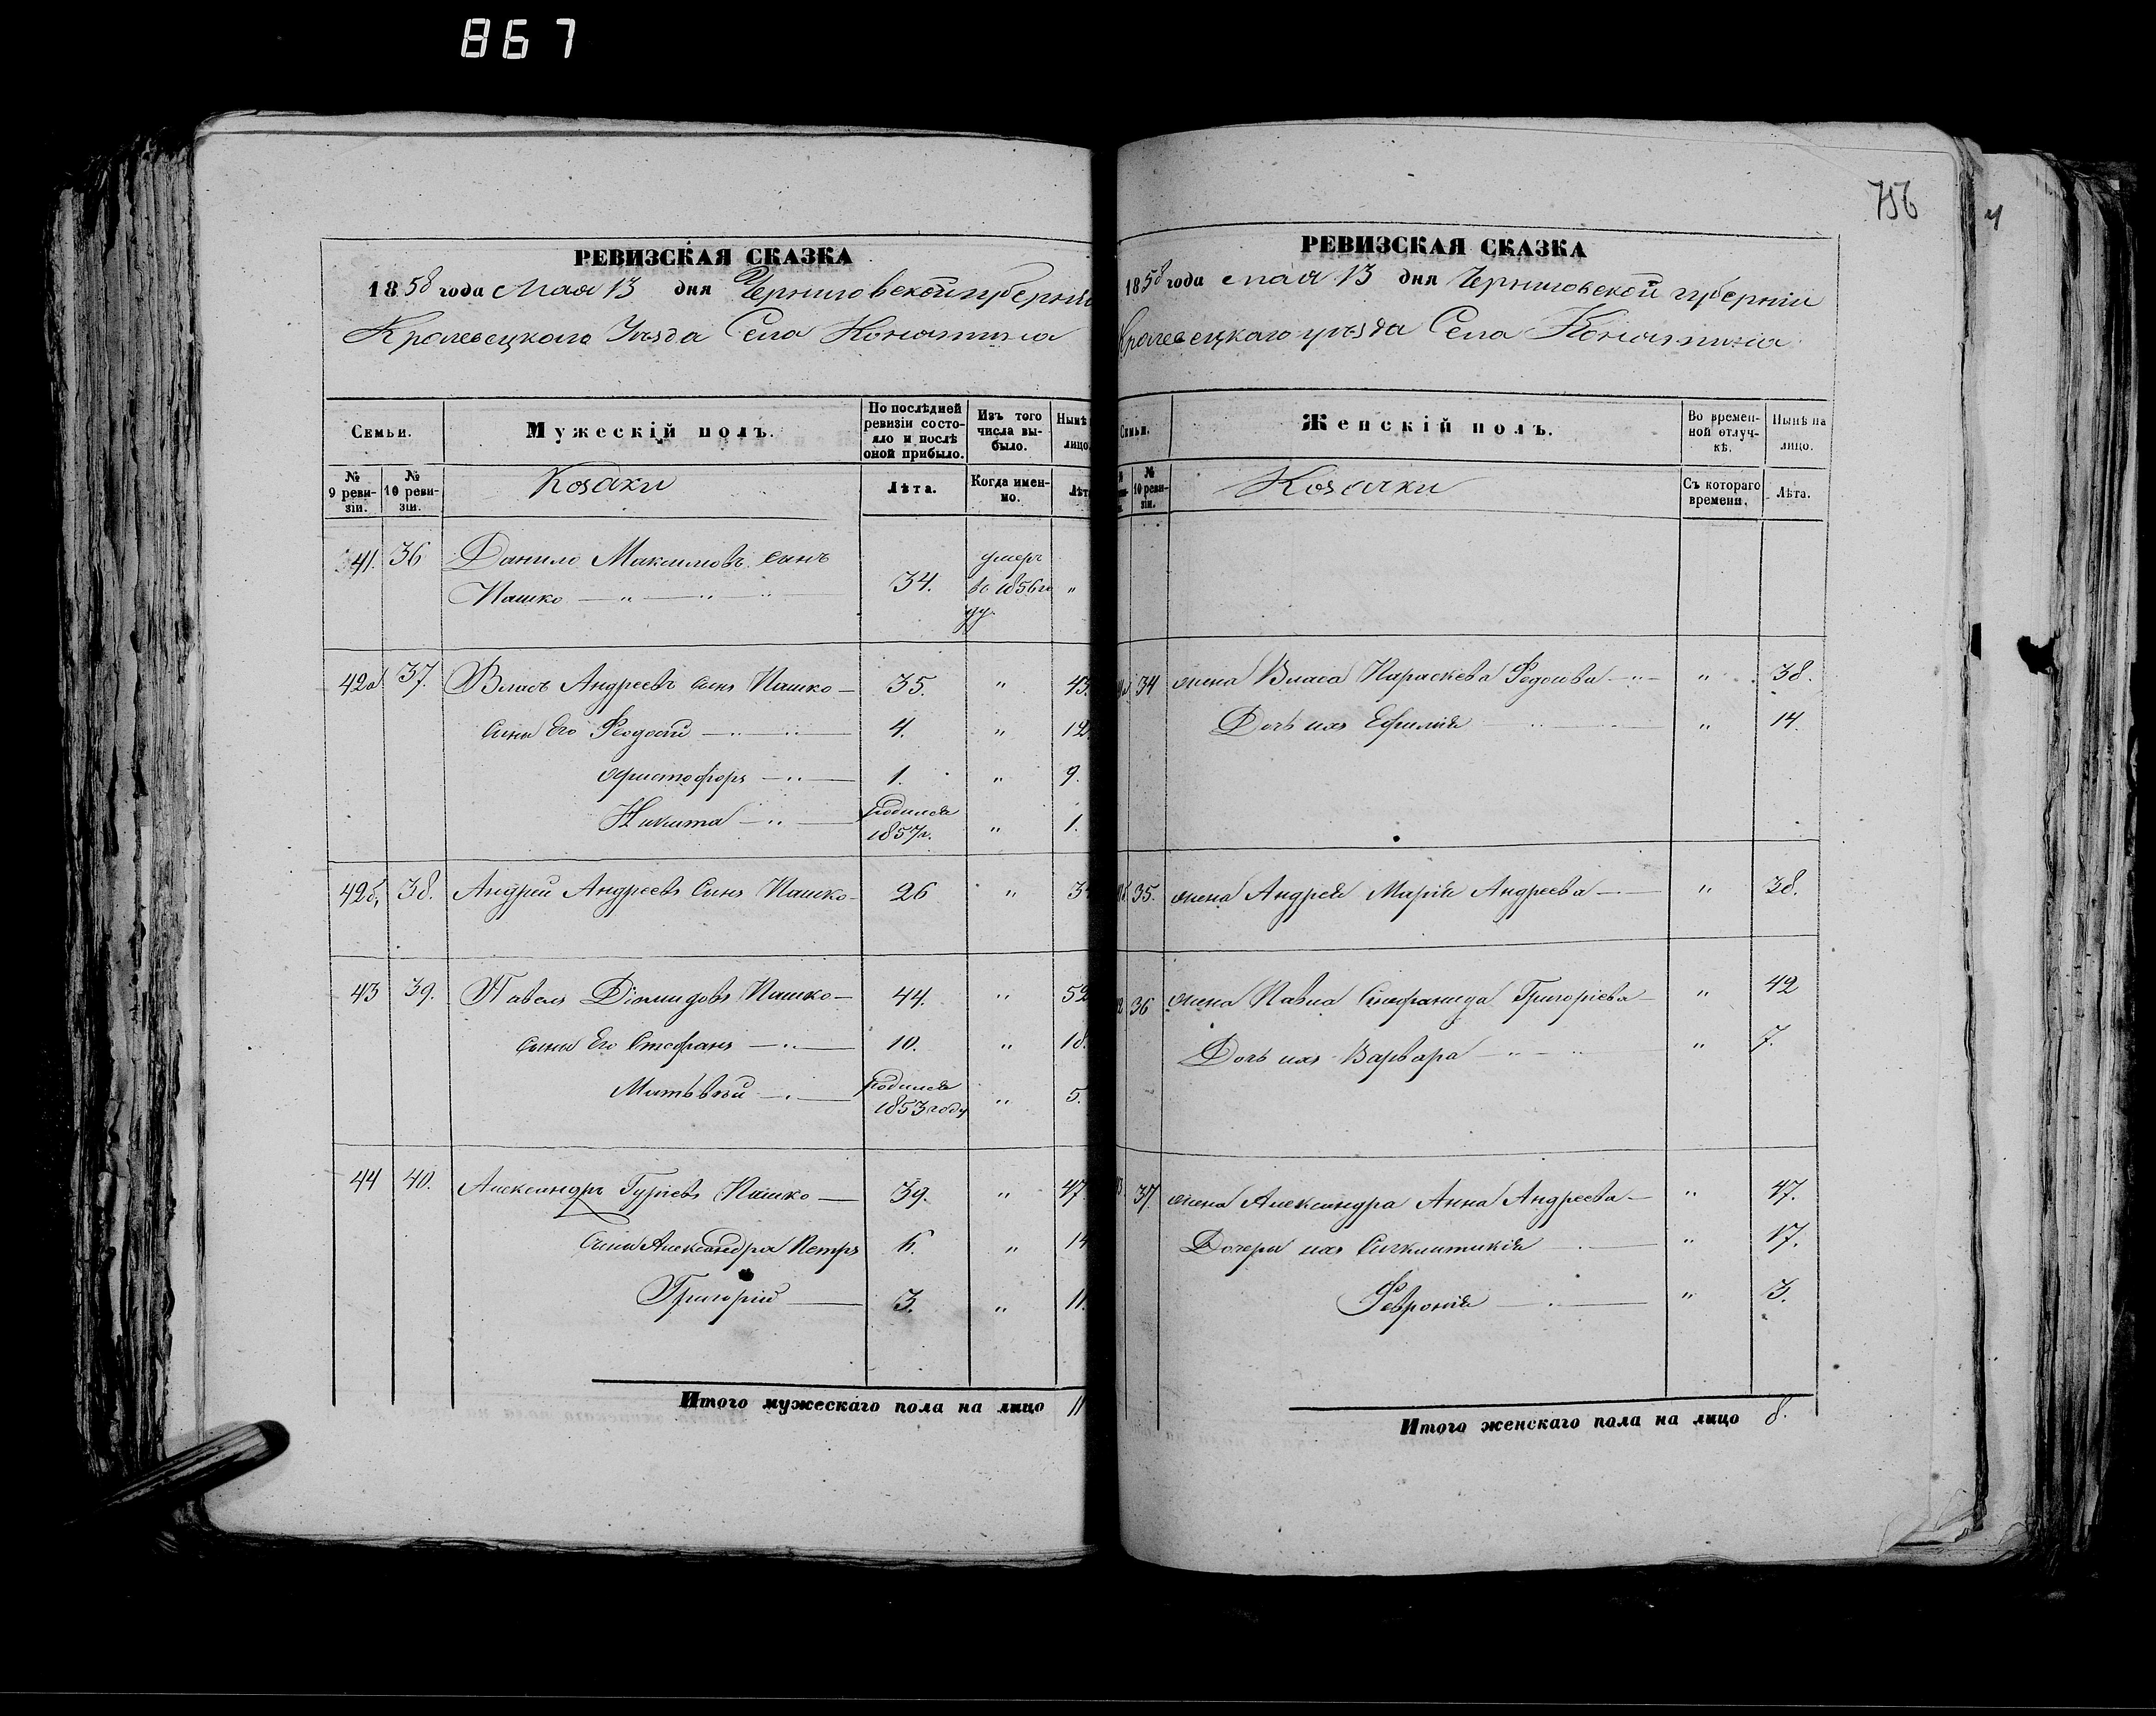 867
РЕВИЗСКАЯ СКАЗКА
1858 года Мая 13 дня Черниговской губерніи
Кролевецкаго Уѣзда Села Конятина
Семьи.
Мужескій полъ.
По послѣдней ревизіи состояло и послѣ оной прибыло.
Изъ того числа выбыло.
Нынѣ
лицо.
№ 9 ревизіи.
№ 10 ревизіи.
Козаки
Лѣта.
Когда именно.
Лѣт
41. 36 Данило Максимовъ сынъ
Пашко — " — " — " 34. умеръ въ 1856 году "
42а 37. Власъ Андреевъ сынъ Пашко — 35. " 43.
сыны Его Феодосій — " — " — 4. " 12
Христофоръ — " — 1. " 9.
Никита — " — родился 1857 г. " 1.
42б, 38. Андрей Андреевъ Сынъ Пашко — 26 " 3
43 39. Павелъ Діомидовъ Пашко — 44. " 52
сыны Его Стефанъ — " — 10. " 18.
Матьвей — " — родился 1853 году " 5.
44 40. Александръ Гуріевъ Пашко — 39. " 47
Сыны Александра Петръ 6. " 14
Григорій — 3. " 11.
Итого мужескаго пола на лицо 11
756
РЕВИЗСКАЯ СКАЗКА
1858 года мая 13 дня Черниговской губерніи
Кролевецкаго уѣзда Села Конятина
Семьи.
Женскій полъ.
Во временной отлучкѣ.
Нынѣ на лицо.
№ 10 ревизіи.
Козачки
Съ котораго времени.
Лѣта.
34 жена Власа Параскева Федосіева — " — " 38.
Дочь ихъ Ефимія — " — " 14.
35. жена Андрея Марія Андреева — " 38.
36 жена Павла Стефанида Григоріева — " 42
Дочь ихъ Варвара — " — " 7.
37. жена Александра Анна Андреева — " 47.
Дочери ихъ Сигклитикія — " 17.
Февронія — " 3.
Итого женскаго пола на лицо 8.